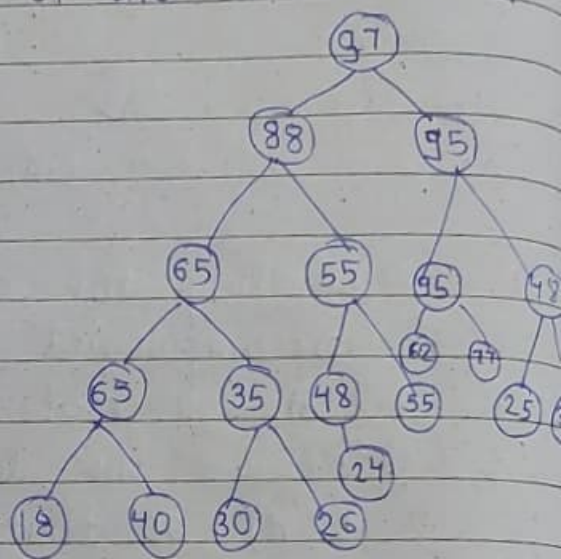 97
88 95
65 55 95 48
62 77
65 35 48 55 25
24
18 40 30 26